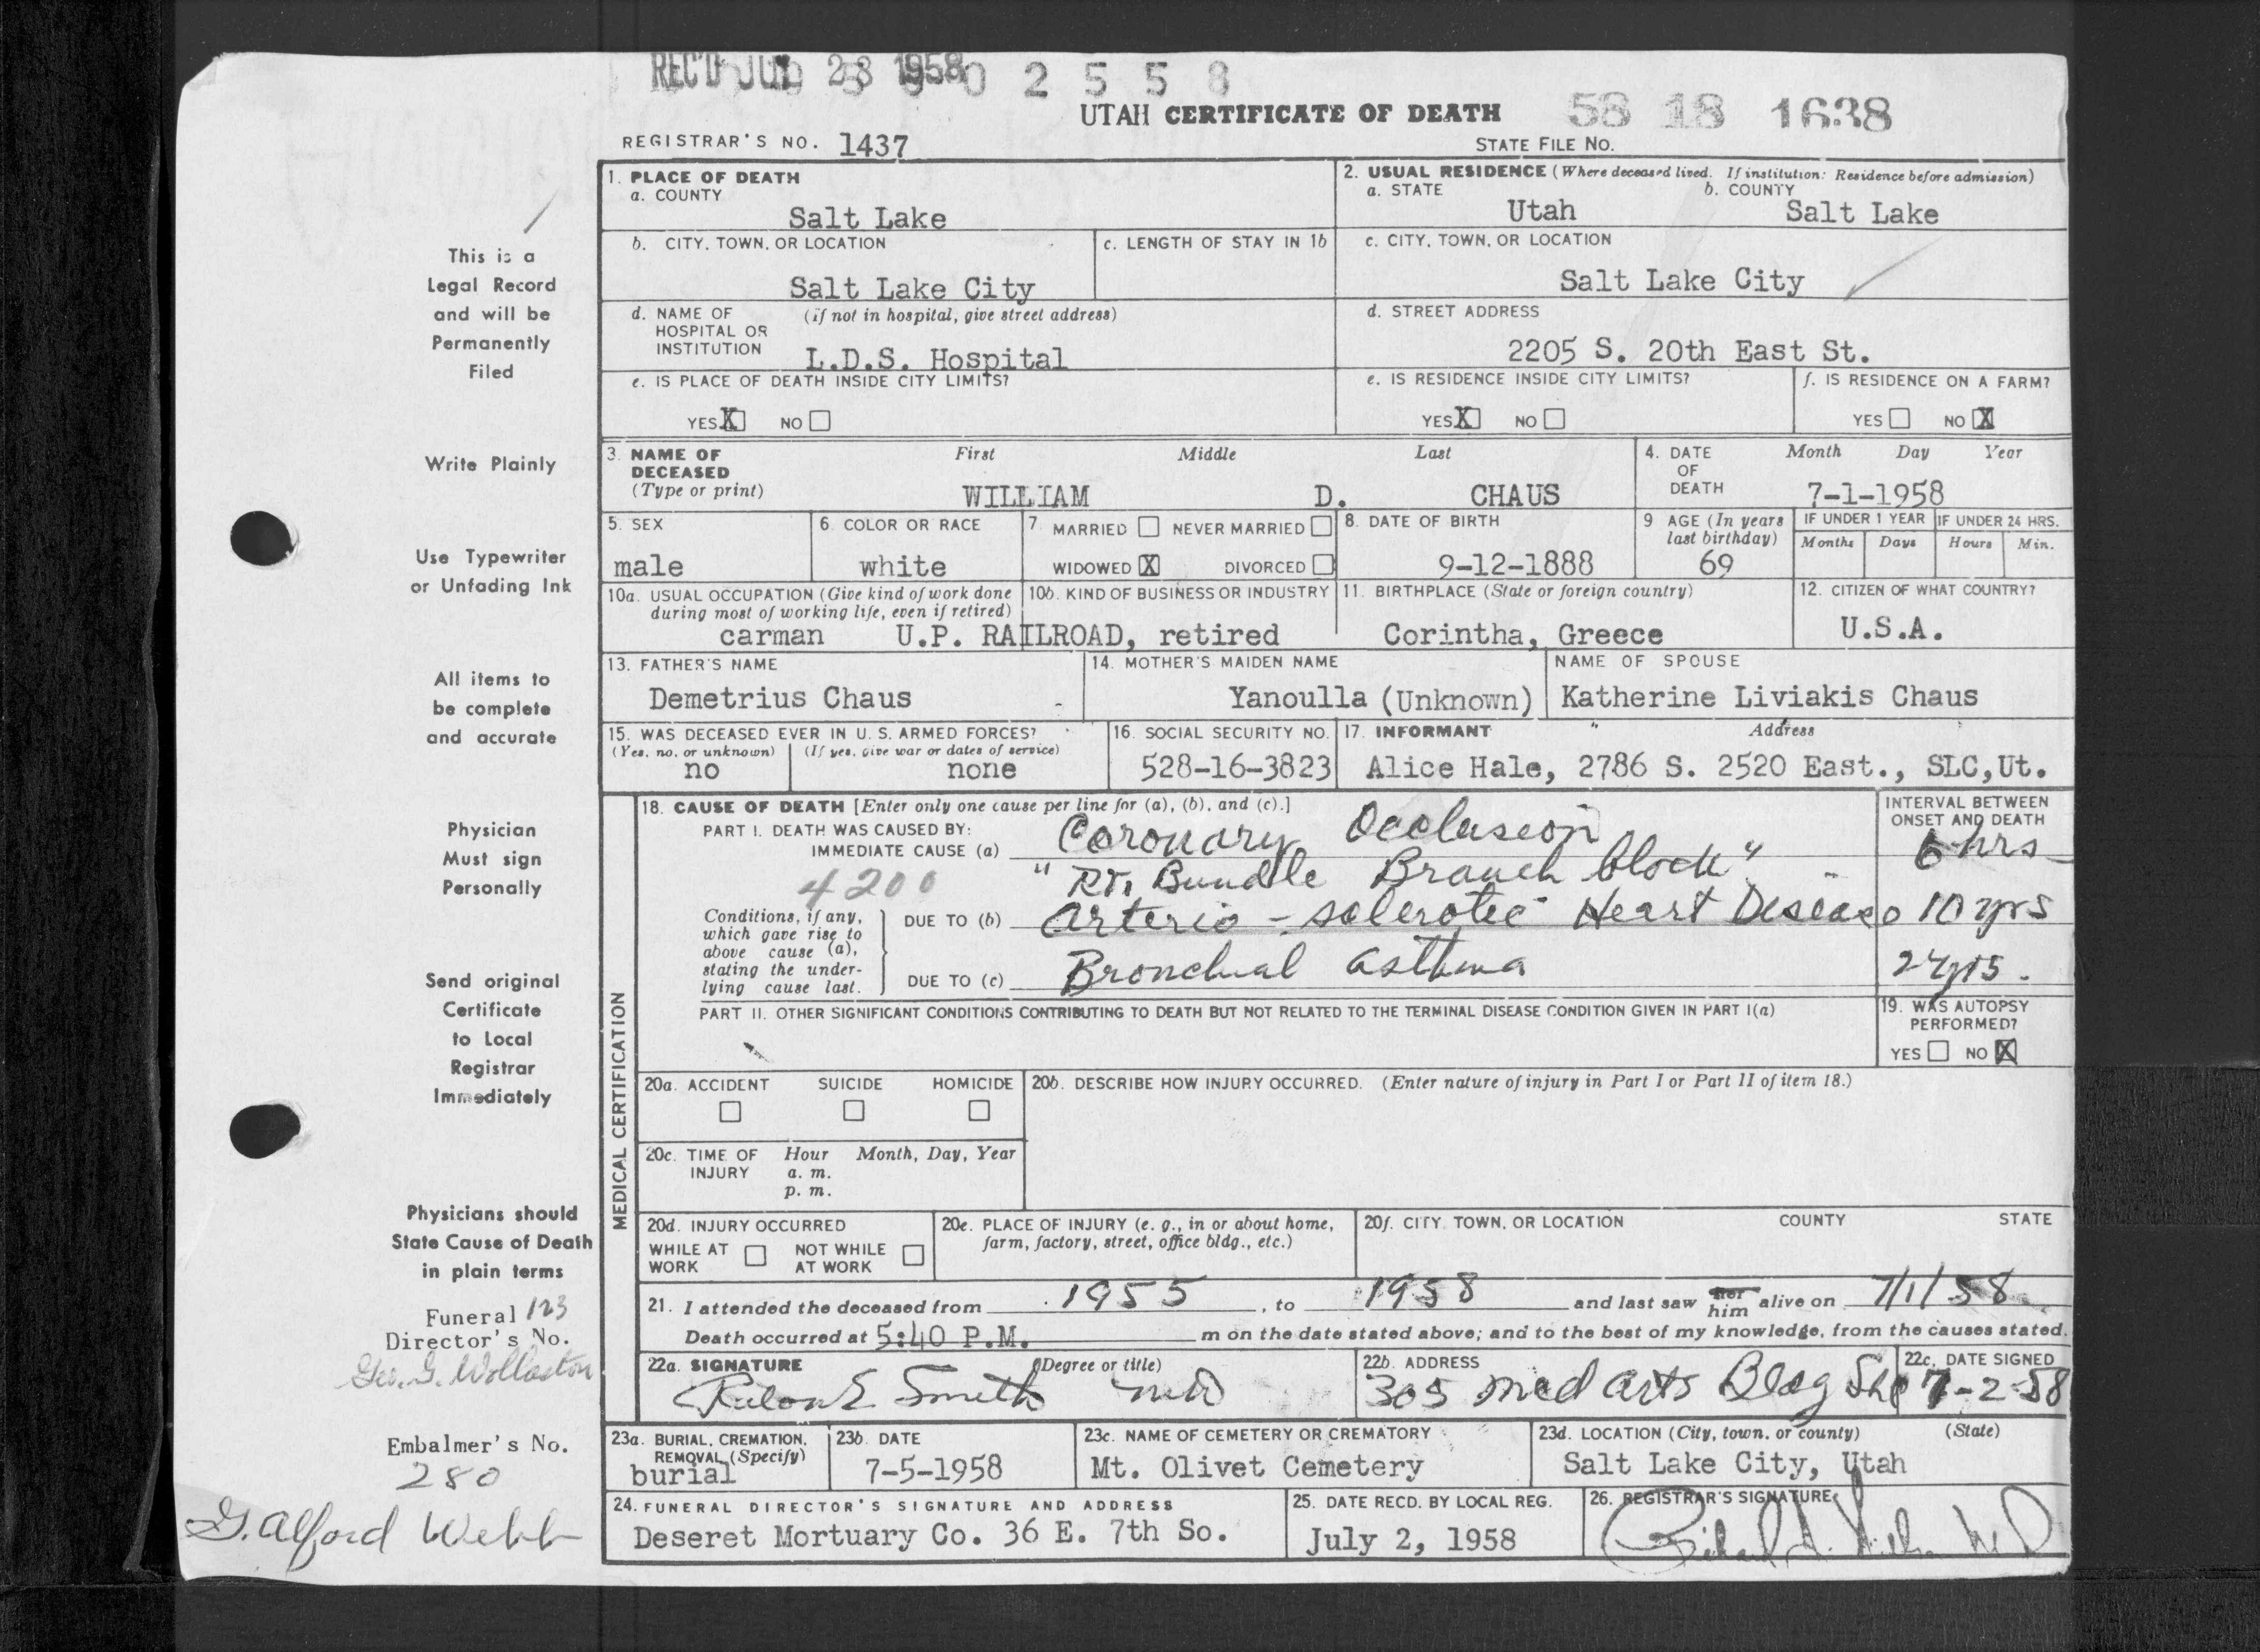 REC'D JUL 28 1958 0 2 5 5 8
UTAH CERTIFICATE OF DEATH 58 18 1638
REGISTRAR'S NO. 1437 STATE FILE NO.
1. PLACE OF DEATH
a. COUNTY
Salt Lake
2. USUAL RESIDENCE (Where deceased lived. If institution: Residence before admission)
a. STATE b. COUNTY
Utah Salt Lake
b. CITY, TOWN, OR LOCATION
Salt Lake City
c. LENGTH OF STAY IN 1b
c. CITY, TOWN, OR LOCATION
Salt Lake City
d. NAME OF HOSPITAL OR INSTITUTION (if not in hospital, give street address)
L.D.S. Hospital
d. STREET ADDRESS
2205 S. 20th East St.
e. IS PLACE OF DEATH INSIDE CITY LIMITS?
YES X NO
e. IS RESIDENCE INSIDE CITY LIMITS?
YES X NO
f. IS RESIDENCE ON A FARM?
YES NO X
3. NAME OF DECEASED (Type or print) First Middle Last
WILLIAM D. CHAUS
4. DATE OF DEATH Month Day Year
7-1-1958
5. SEX
male
6. COLOR OR RACE
white
7. MARRIED NEVER MARRIED
WIDOWED X DIVORCED
8. DATE OF BIRTH
9-12-1888
9 AGE (In years last birthday)
69
IF UNDER 1 YEAR IF UNDER 24 HRS.
Months Days Hours Min.
10a. USUAL OCCUPATION (Give kind of work done during most of working life, even if retired)
10b. KIND OF BUSINESS OR INDUSTRY
carman U.P. RAILROAD, retired
11. BIRTHPLACE (State or foreign country)
Corintha, Greece
12. CITIZEN OF WHAT COUNTRY?
U.S.A.
13. FATHER'S NAME
Demetrius Chaus
14. MOTHER'S MAIDEN NAME
Yanoulla (Unknown)
NAME OF SPOUSE
Katherine Liviakis Chaus
15. WAS DECEASED EVER IN U. S. ARMED FORCES?
(Yes, no, or unknown) (If yes, give war or dates of service)
no none
16. SOCIAL SECURITY NO.
528-16-3823
17. INFORMANT Address
Alice Hale, 2786 S. 2520 East., SLC,Ut.
MEDICAL CERTIFICATION
18. CAUSE OF DEATH [Enter only one cause per line for (a), (b), and (c).]
INTERVAL BETWEEN ONSET AND DEATH
PART I. DEATH WAS CAUSED BY:
IMMEDIATE CAUSE (a) Coronary Occlusion 6 hrs
4200 "Rt. Bundle Branch block"
Conditions, if any, which gave rise to above cause (a), stating the underlying cause last.
DUE TO (b) Arterio-sclerotic Heart Disease 10 yrs
DUE TO (c) Bronchial Asthma 24 yrs.
PART II. OTHER SIGNIFICANT CONDITIONS CONTRIBUTING TO DEATH BUT NOT RELATED TO THE TERMINAL DISEASE CONDITION GIVEN IN PART I(a)
19. WAS AUTOPSY PERFORMED?
YES NO X
20a. ACCIDENT SUICIDE HOMICIDE
20b. DESCRIBE HOW INJURY OCCURRED. (Enter nature of injury in Part I or Part II of item 18.)
20c. TIME OF INJURY Hour Month, Day, Year
a. m.
p. m.
20d. INJURY OCCURRED
WHILE AT WORK NOT WHILE AT WORK
20e. PLACE OF INJURY (e. g., in or about home, farm, factory, street, office bldg., etc.)
20f. CITY, TOWN, OR LOCATION COUNTY STATE
21. I attended the deceased from 1955, to 1958 and last saw her him alive on 7/1/58
Death occurred at 5:40 P.M. m on the date stated above; and to the best of my knowledge, from the causes stated.
22a. SIGNATURE (Degree or title)
Rulon E Smith MD
22b. ADDRESS
305 Med Arts Bldg Slc
22c. DATE SIGNED
7-2-58
23a. BURIAL, CREMATION, REMOVAL (Specify)
burial
23b. DATE
7-5-1958
23c. NAME OF CEMETERY OR CREMATORY
Mt. Olivet Cemetery
23d. LOCATION (City, town, or county) (State)
Salt Lake City, Utah
24. FUNERAL DIRECTOR'S SIGNATURE AND ADDRESS
Deseret Mortuary Co. 36 E. 7th So.
25. DATE RECD. BY LOCAL REG.
July 2, 1958
26. REGISTRAR'S SIGNATURE
This is a
Legal Record
and will be
Permanently
Filed
Write Plainly
Use Typewriter
or Unfading Ink
All items to
be complete
and accurate
Physician
Must sign
Personally
Send original
Certificate
to Local
Registrar
Immediately
Physicians should
State Cause of Death
in plain terms
Funeral 123
Director's No.
Geo. G. Wollaston
Embalmer's No.
280
G. Alford Webb